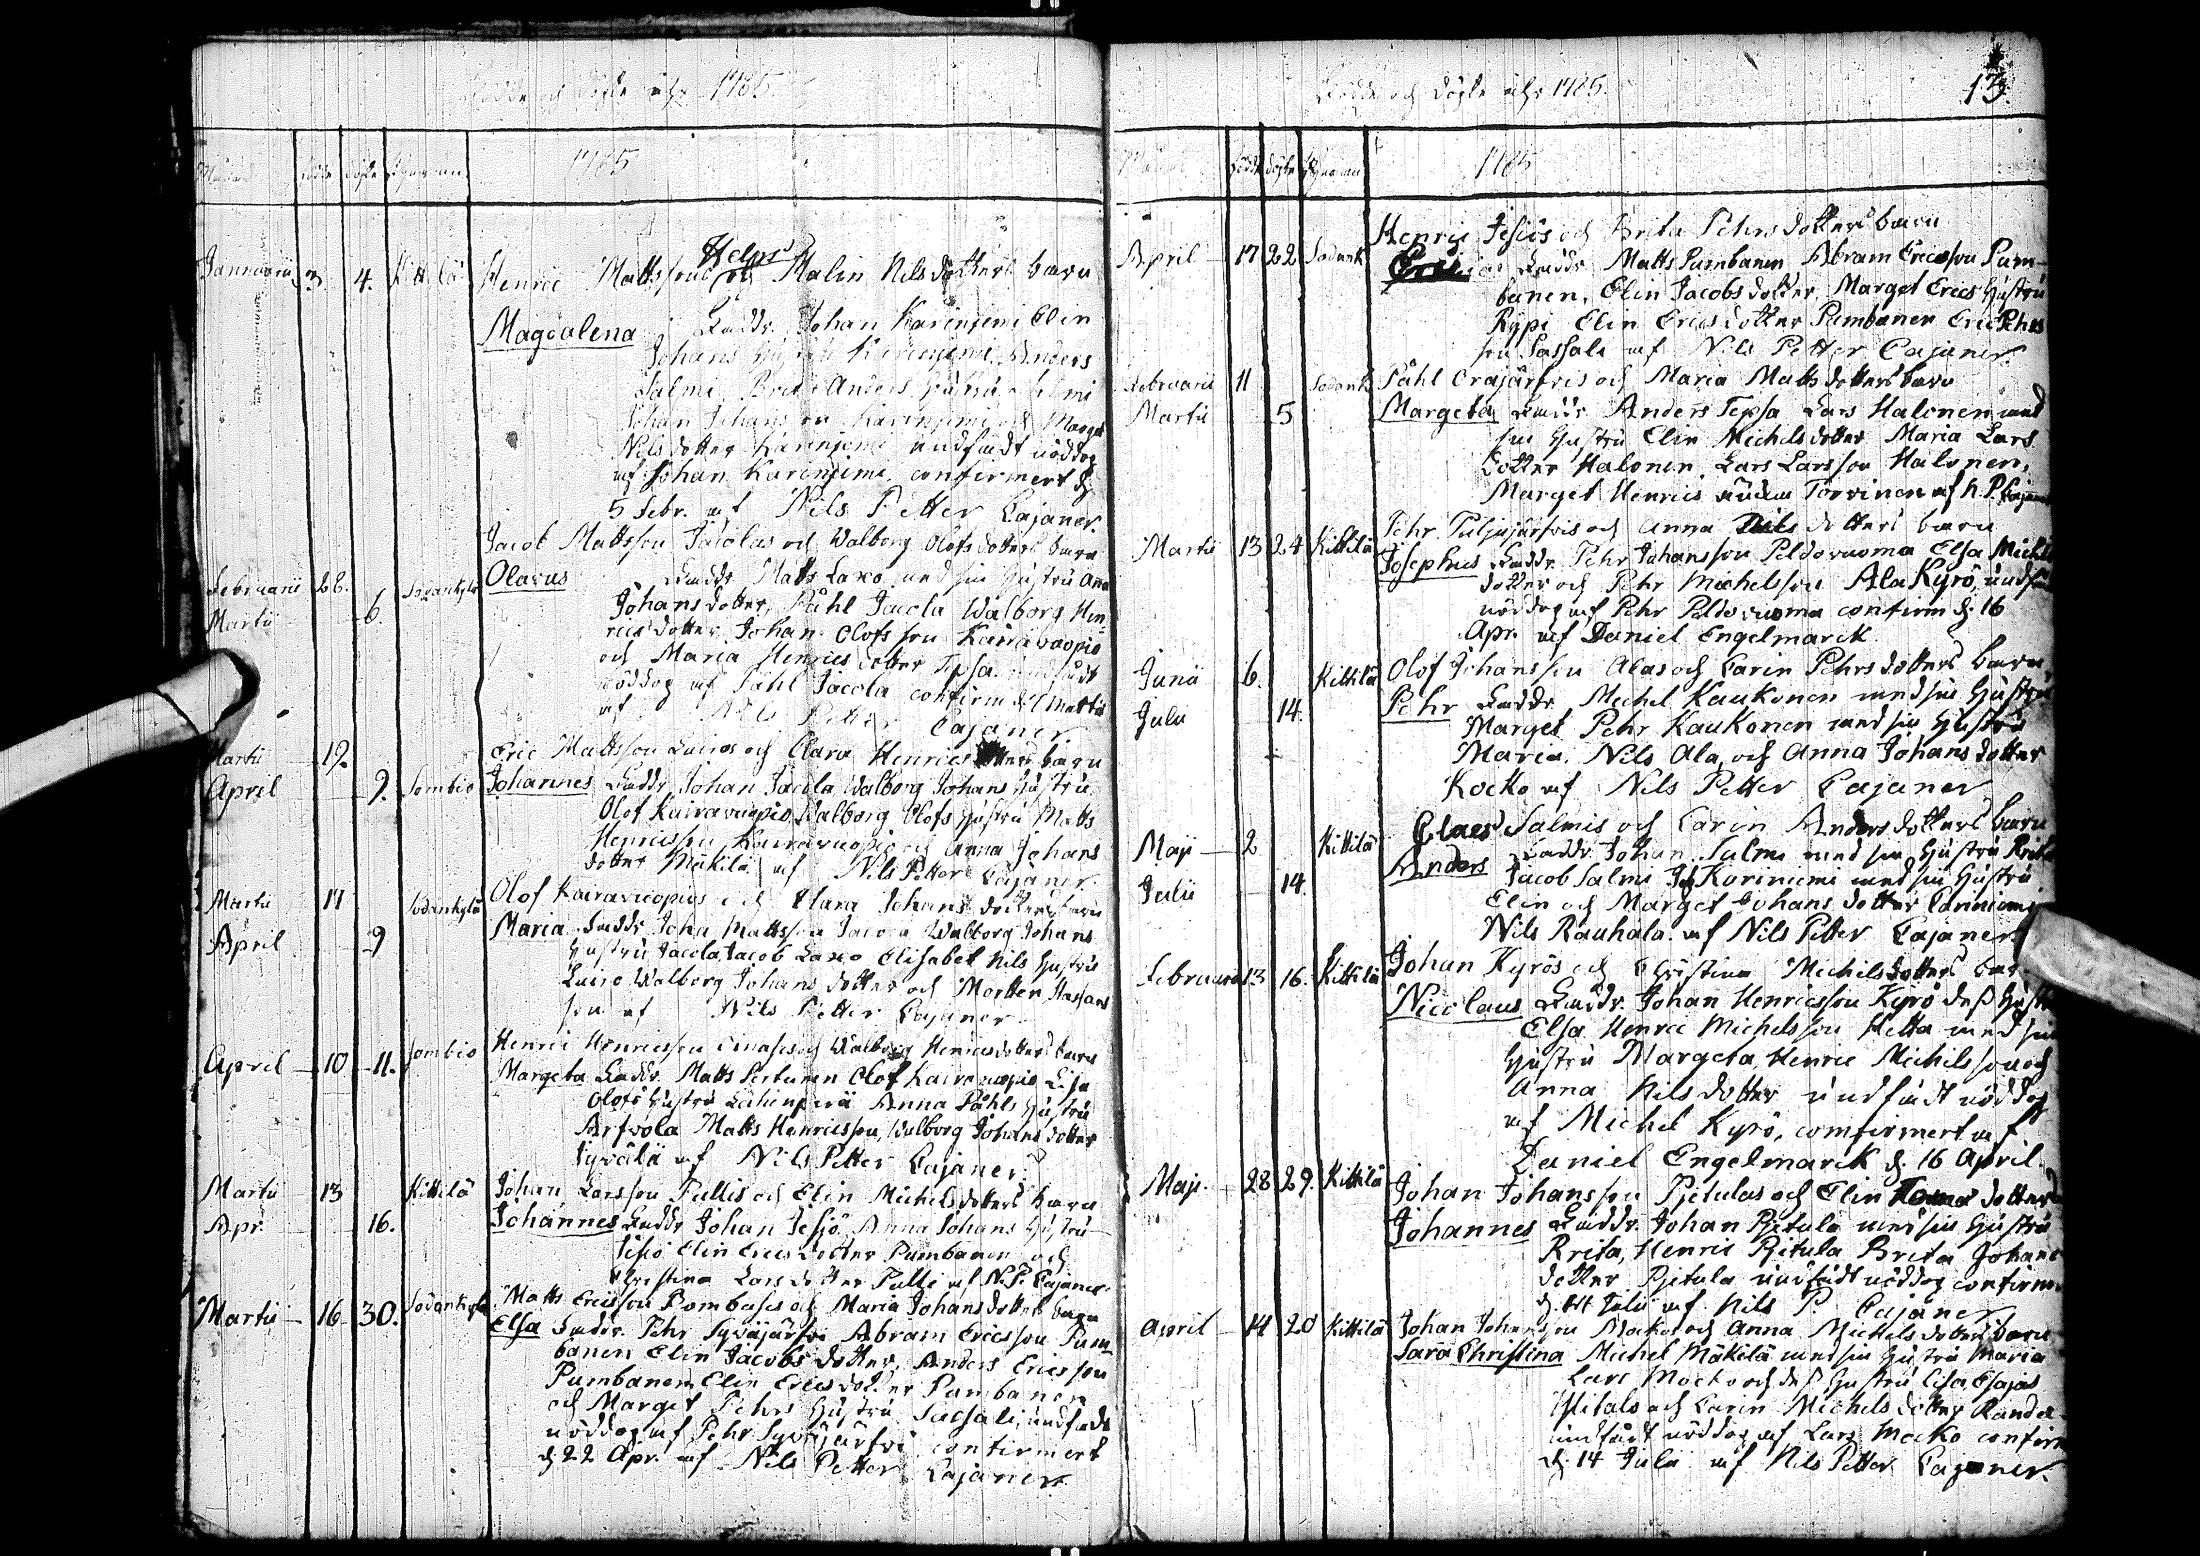 Födde och döpte åhr 1785
1785
födde döpte Byarnas namn
Januarii 3. 4. Kittilä Henric Mattsson Helps och Malin Nilsdotters barn
Magdalena Faddr. Johan Karinjemi Elin
Johans Hustru Karinjemi, Anders
Salmi, Brita Anders Hustru Salmi
Johan Johansson Karinjemi och Marget
Nilsdotter Karinjemi undfådt nöddop
af Johan Karinjemi confirmert d.
5 Febr. af Nils Petter Cajaner.
Jacob Mattsson Jacolas och Walborg Olofsdotters barn
Februarii 26. Sodankylä Olavus Faddr. Matts Laxo med sin Hustru Anna
Martii 6. Johansdotter, Påhl Jacola Walborg Hen-
ricsdotter, Johan Olofsson Kairavuopio
och Maria Henricsdotter Tepsa undfådt
nöddop af Påhl Jacola confirm d. Martii
af Nils Petter Cajaner
Martii 19. Eric Mattsson Luiros och Clara Henricsdotters barn
April 9. Sombio Johannes Faddr. Johan Jacola Walborg Johans Hustru
Olof Kairavuopio, Walborg Olofs Hustru Matts
Henricsson Kairavuopio och Anna Johans
dotter Mäkilä af Nils Petter Cajaner.
Martii 17 Sodankylä Olof Kairavuopios och Clara Johans dotters barn
April 9 Maria Faddr. John Mattsson Jacola Walborg Johans
Hustru Jacola, Jacob Laxo Elisabet Nils Hustru
Luiro Walborg Johans dotter och Morten
son af Nils Petter Cajaner
April 10 11. Sombio Henric Henricsson och Walborg Henricsdotters barn
Margeta Faddr. Matts Pertunen Olof Kairavuopio Lisa
Olofs Hustru Anna Påhls Hustru
Arfvola Matts Henricsson, Walborg Johans dotter
Syvälä af Nils Petter Cajaner.
Martii 13 Kittilä Johan Larsson Pullis och Elin Michelsdotters barn
Apr. 16. Johannes Faddr. Johan Jesjö Anna Johans Hustru
Jesiö Elin Ericsdotter Pumbanen och
Christina Larsdotter Pulli af N. P. Cajaner
Martii 16 30. Sodankylä Matts Ericsson Pombases och Maria Johansdotters barn
Elsa Faddr. Pehr Syväjärfvi Abram Ericsson Pum-
banen Elin Jacobs dotter, Anders Ericsson
Pumbanen, Elin Ericsdotter Pumbanen
och Marget Pehrs Hustru Sassali, undfådt
nöddop af Pehr Syväjärfvi confirmert
d. 22 Apr. af Nils Petter Cajaner
Födde och döpte åhr 1785.
13.
1785
födde döpte Byarnas namn
Henric Jesiös och Brita Pehrsdotters barn
April 17 22 Sodank Faddr. Matts Pumbanen Abram Ericsson Pum-
banen, Elin Jacobsdotter, Marget Erics Hustru
Rypi Elin Ericsdotter Pumbanen Eric Pehrs
son Sassali af Nils Petter Cajaner.
Februarii 11 Sodank Påhl Orajärfvis och Maria Mattsdotters barn
Martii 5 Margeta Faddr. Anders Tepsa Lars Halonen med
sin Hustru Elin Michelsdotter Maria Lars
dotter Halonen, Lars Larsson Halonen,
Marget Henrics Torvinen af N. P. Cajaner
Martii 13 24 Kittilä Pehr Puljujärfvis och Anna Nils dotters barn
Josephus Faddr. Pehr Johansson Peldovuoma Elsa Michels
dotter och Pehr Michelsson Ala Kyrö, undfådt
nöddop af Pehr Peldovuoma confirm d. 16
Apr. af Daniel Engelmarck
Junii 6. Kittilä Olof Johansson Alas och Carin Pehrsdotters barn
Julii 14. Pehr Faddr. Michel Kaukonen med sin Hustru
Marget, Pehr Kaukonen med sin Hustru
Maria, Nils Ala och Anna Johans dotter
Kocko af Nils Petter Cajaner
Maji 2 Kittilä Claes Salmis och Carin Andersdotters barn
Julii 14. Anders Faddr. Johan Salmi med sin Hustru Brita
Jacob Salmi Joh Karinemi med sin Hustru
Elin och Marget Johans dotter
Nils Rauhala. af Nils Petter Cajaner.
Februarii 13 16. Kittilä Johan Kyrös och Christina Michelsdotters barn
Nicolaus Faddr. Johan Henricsson Kyrö dess Hustru
Elsa, Henric Michelsson Hetta med sin
Hustru Margeta, Henric Michelsson och
Anna Nilsdotter undfådt nöddop
af Michel Kyrö, comfirmert af
Daniel Engelmarck d. 16 April.
Maji. 28 29. Kittilä Johan Johansson Pjetulas och Elin dotters
Johannes Faddr. Johan Pjetula med sin Hustru
Brita, Henric Pjetula Brita Johans
dotter Pjetula undfådt nöddop confirm.
d. Julii af Nils P. Cajaner
April 14 20 Kittilä Johan Johansson Mockos och Anna Michelsdotters barn
Sara Christina Michel Mäkilä med sin Hustru Maria
Lars Mocko och dess Hustru Lisa, Esajas
och Carin Michels dotter
undfådt nöddop af Lars Mocko confirm
d. 14 Julii af Nils Petter Cajaner.